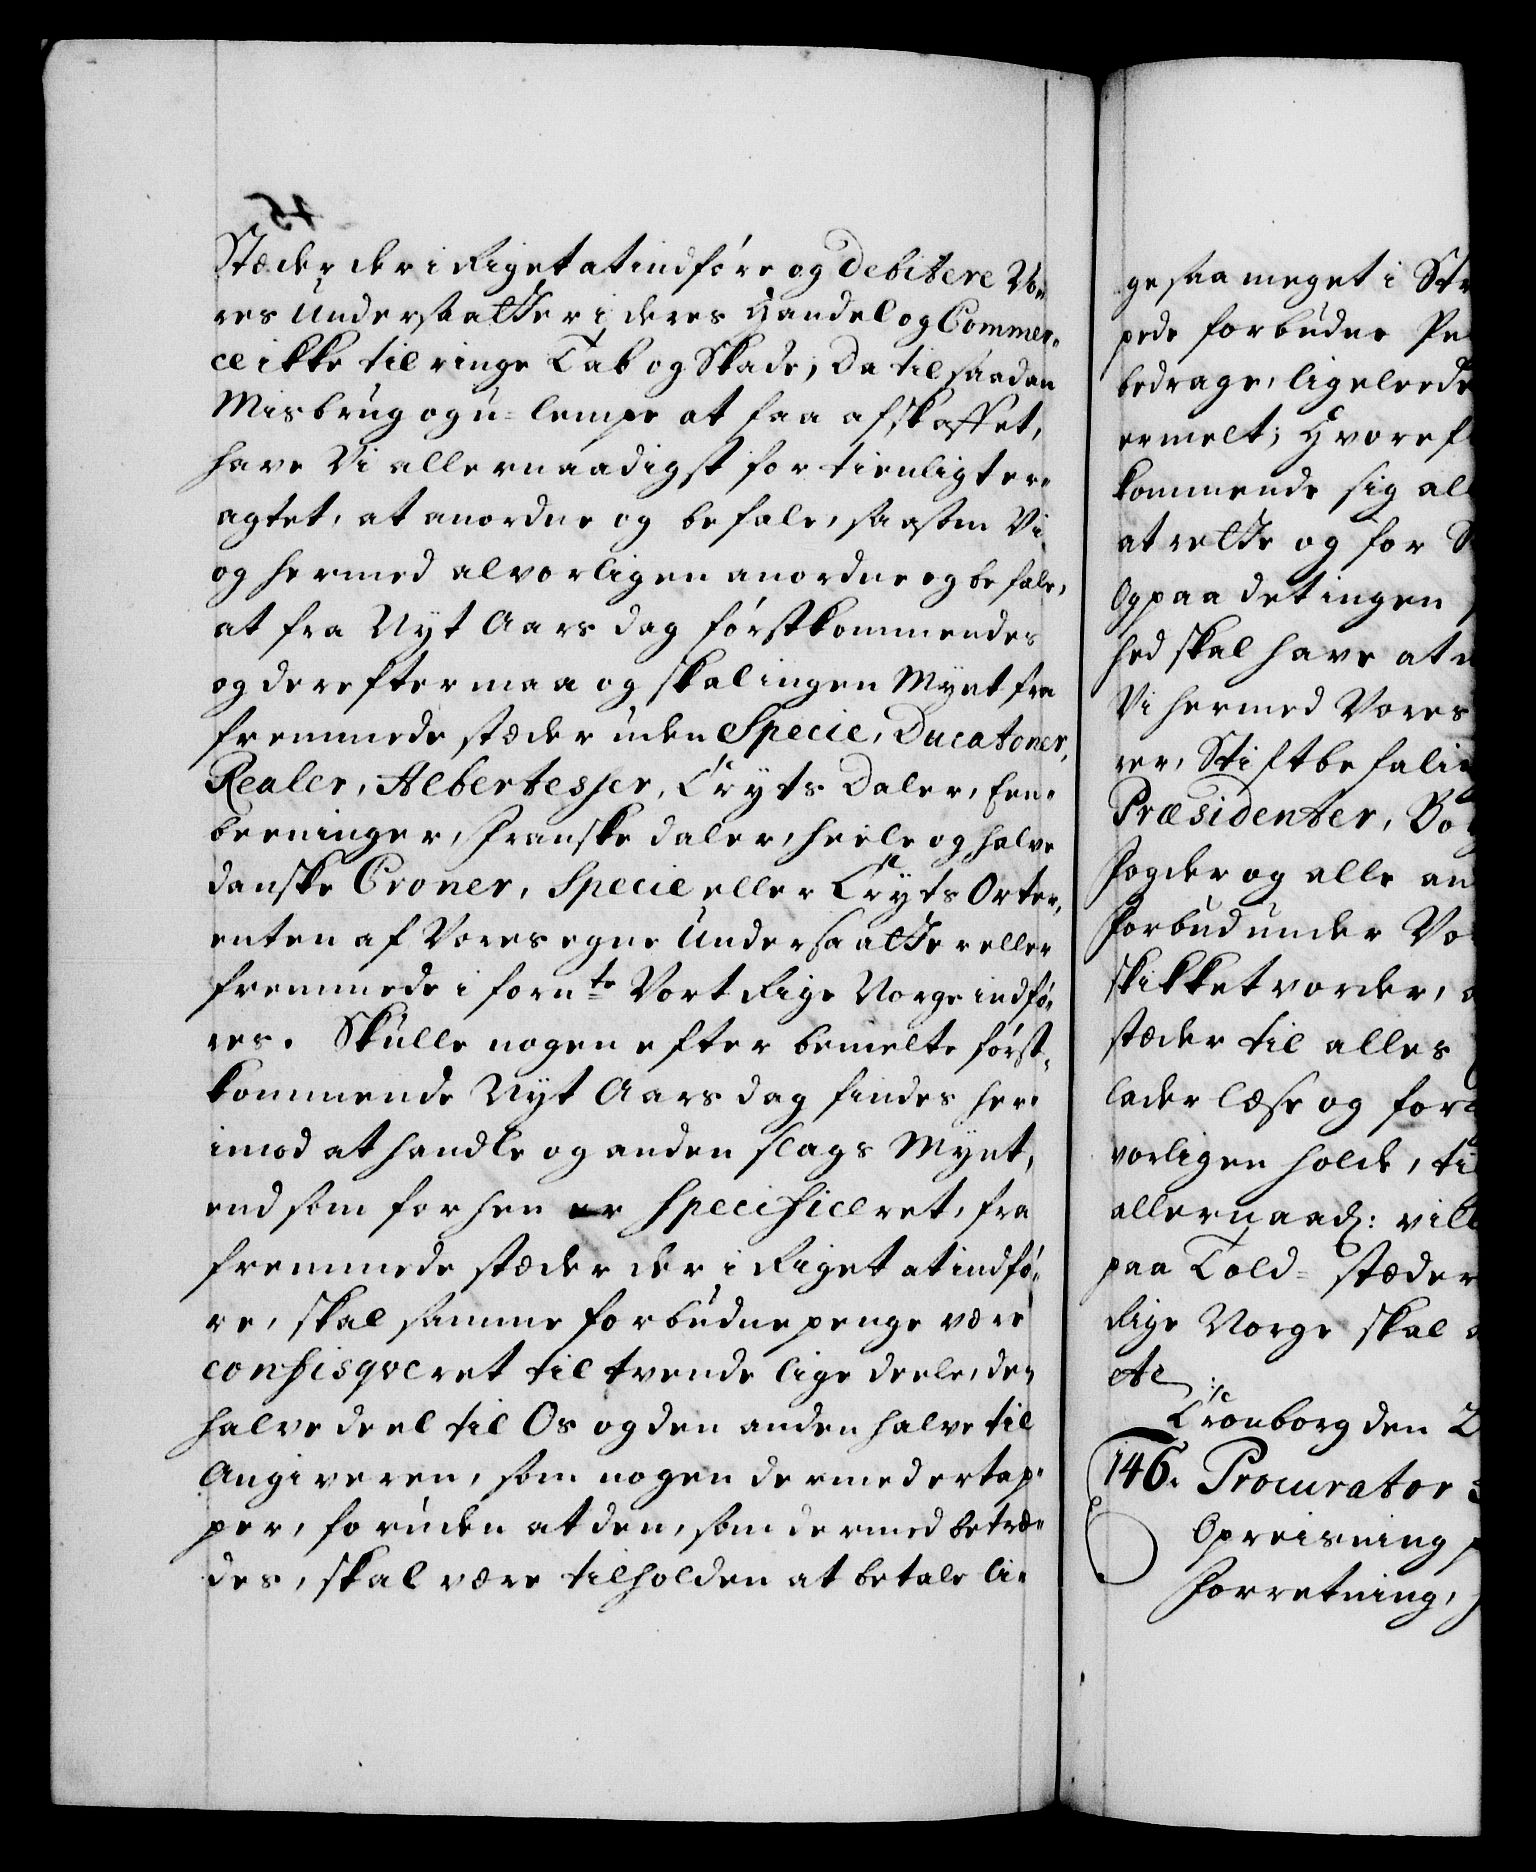 Stæder der i Riget at indføre og debitere Vo-
res Undersaatter i deres Handel og Commer-
ce ikke til ringe Tab og Skade; Da til saadan
Misbrug og u-lempe at faa afskaffet,
have Vi allernaadigst for tienligt er-
agtet, at anordne og befale, saasom Vi
og hermed alvorligen anordne og befale,
at fra Nyt Aars dag førstkommendes
og derefter maa og skal ingen Mynt fra
fremmede stæder uden Specie, Ducatoner,
Realer, Albertesser, Cryts Daler, Een-
beeninger, Franske daler, heele og halve
danske Croner, Specie eller Cryts Orter,
enten af Vores egne Undersaatter eller
fremmede i forn:te Vort Rige Norge indfø-
res. Skulle nogen efter bemelte først-
kommende Nyt Aars dag findes her-
imod at handle og anden slags Mynt,
end som forhen er specificeret, fra
fremmede stæder der i Riget at indfø-
re, skal samme forbudne penge være
confisqveret til tvende lige deele, den
halve deel til Os og den anden halve til
Angiveren, som nogen dermed ertap-
per, foruden at den, som dermed betræ-
des, skal være tilholden at betale li-
ge saa meget i
pede forbudne
bedrage, ligeleedes
ermelt;
kommende sig
at rette og for
Og paa det ingen
hed skal have at
Vi hermed Vores
rer, Stiftbefalin
Præsidenter,
Fogder og alle
Forbud under
skikket vorder,
stæder til alles
lader læse og
vorligen holde,
allernaad: vill
paa Told-stæder
Rige Norge skal
etc.
Cronborg den
146. Procurator
Opreisning
Forretning,